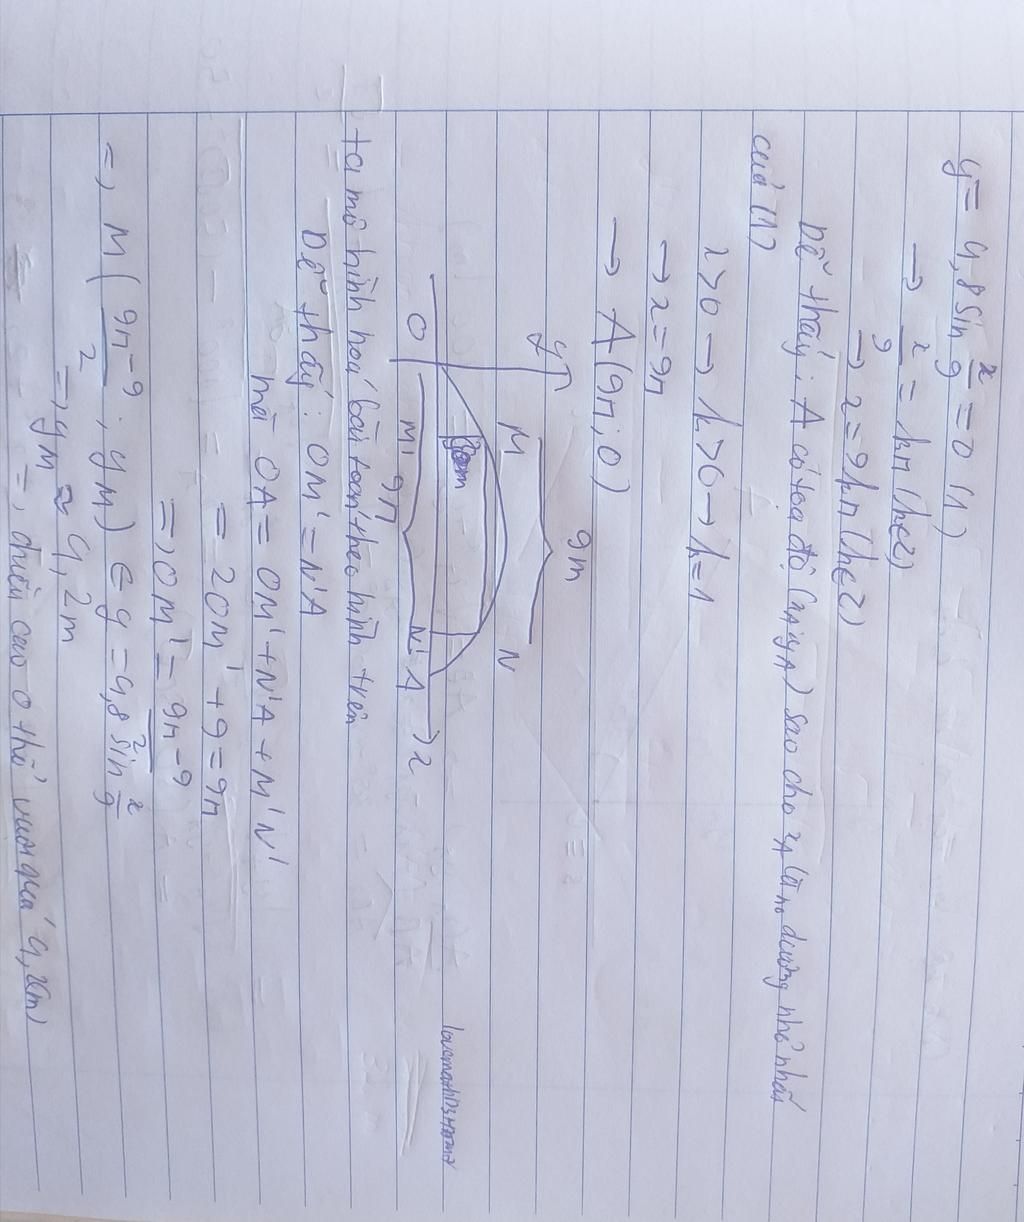 y = 4,8 sin x/9 = 0 (1)
→ x/9 = kπ (k∈Z)
→ x = 9kπ (k∈Z)
Dễ thấy: A có tọa độ (xA; yA) sao cho xA là n0 dương nhỏ nhất
của (1)
x>0 → k>0 → k=1
→ x = 9π
→ A (9π; 0)
9m
y
M
N
O
M'
N'
A
x
9π
ta mô hình hoá bài toán theo hình trên
Dễ thấy: OM' = N'A
mà OA = OM' + N'A + M'N'
= 2OM' + 9 = 9π
⇒ OM' = 9π - 9 / 2
⇒ M (9π - 9 / 2 ; yM) ∈ y = 4,8 sin x/9
⇒ yM ≈ 4,2m
⇒ chiều cao 0 thể vượt quá 4,2(m)